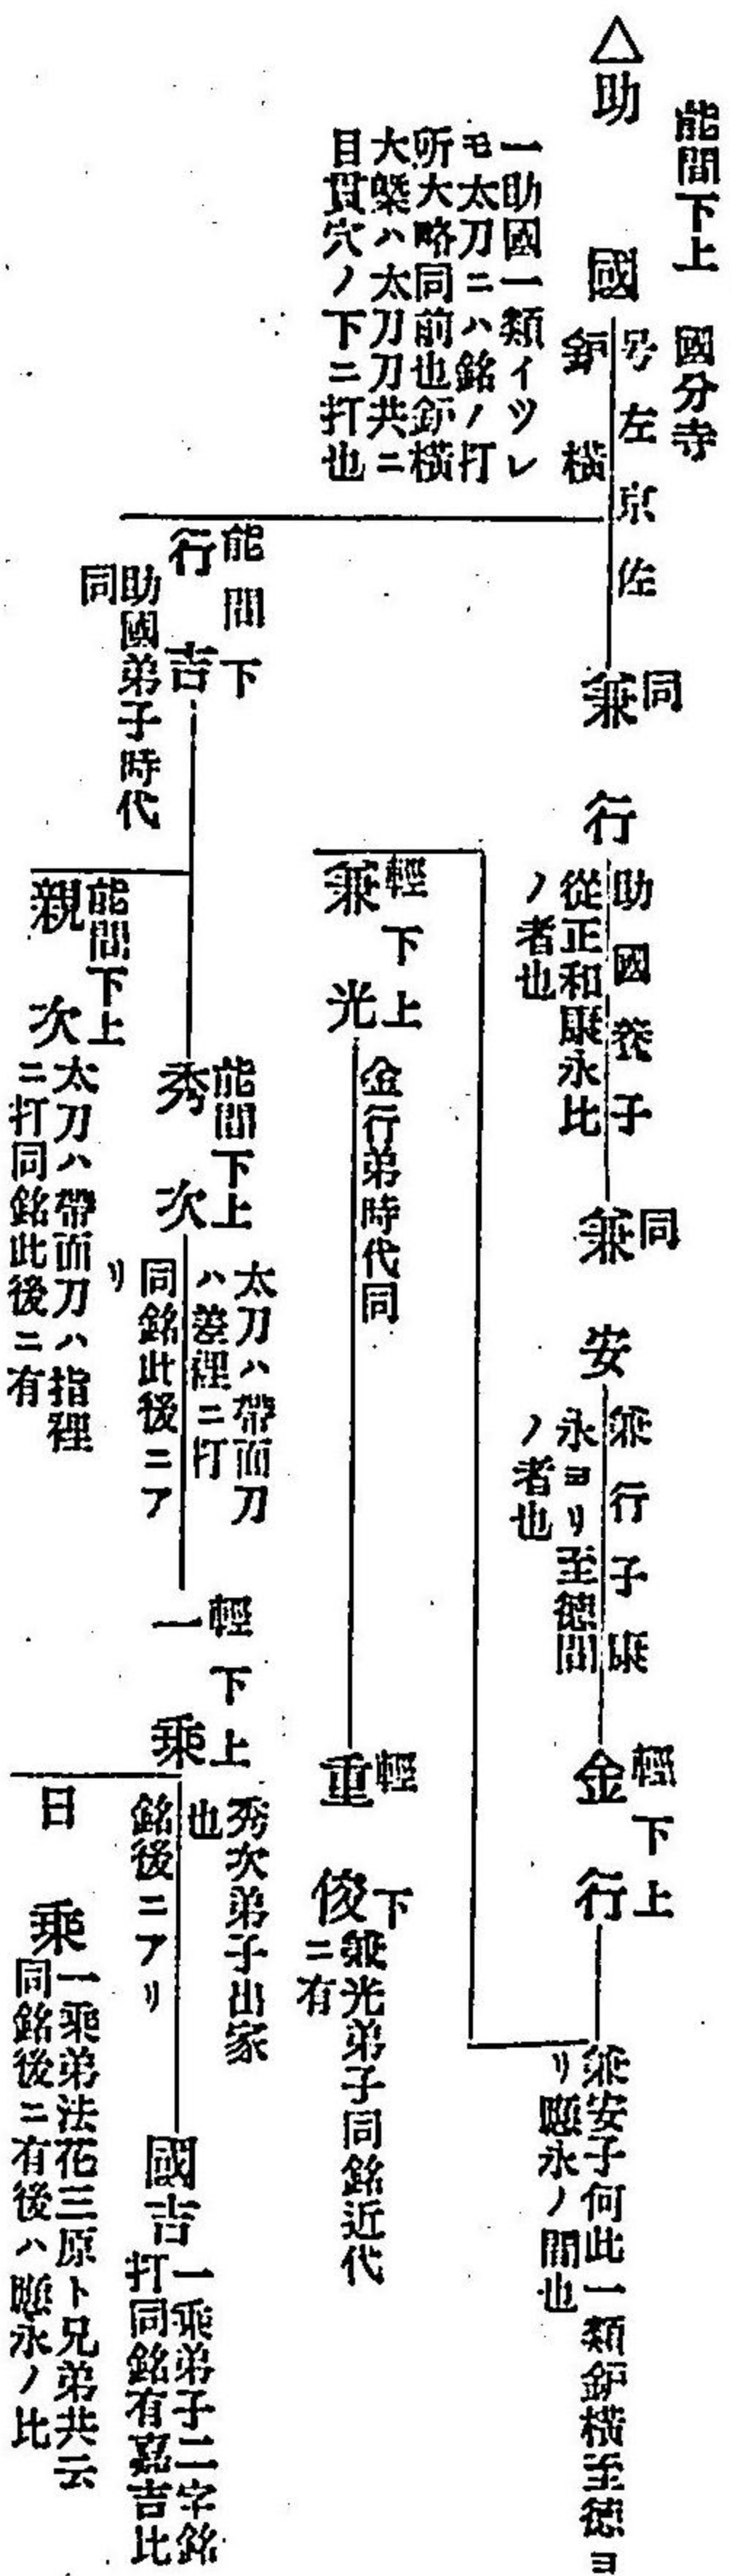 能間下上　國分寺
△助國
号左京佐
鈩横
一助國一類イツレ
モ太刀ニハ銘ノ打
所大略同前也鈩横
大槩ハ太刀刀共ニ
目貫穴ノ下ニ打也
同
兼行
助國養子
從正和康永比
ノ者也
同
兼安
兼行子康
永ヨリ至徳間
ノ者也
輕下上
金行
兼安子何此一類鈩横至徳ヨ
リ應永ノ間也
輕下上
兼光
金行弟時代同
輕下
重俊
兼光弟子同銘近代
ニ有
能間下
行吉
助國弟子時代
同
能間下上
秀次
太刀ハ帶面刀
ハ差裡ニ打
同銘此後ニア
リ
輕下上
一乘
秀次弟子出家
也
銘後ニアリ
國吉
一乘弟子二字銘
打同銘有嘉吉比
能間下上
親次
太刀ハ帶面刀ハ指裡
ニ打同銘此後ニ有
日乘
一乘弟法花三原ト兄弟共云
同銘後ニ有後ハ應永ノ比